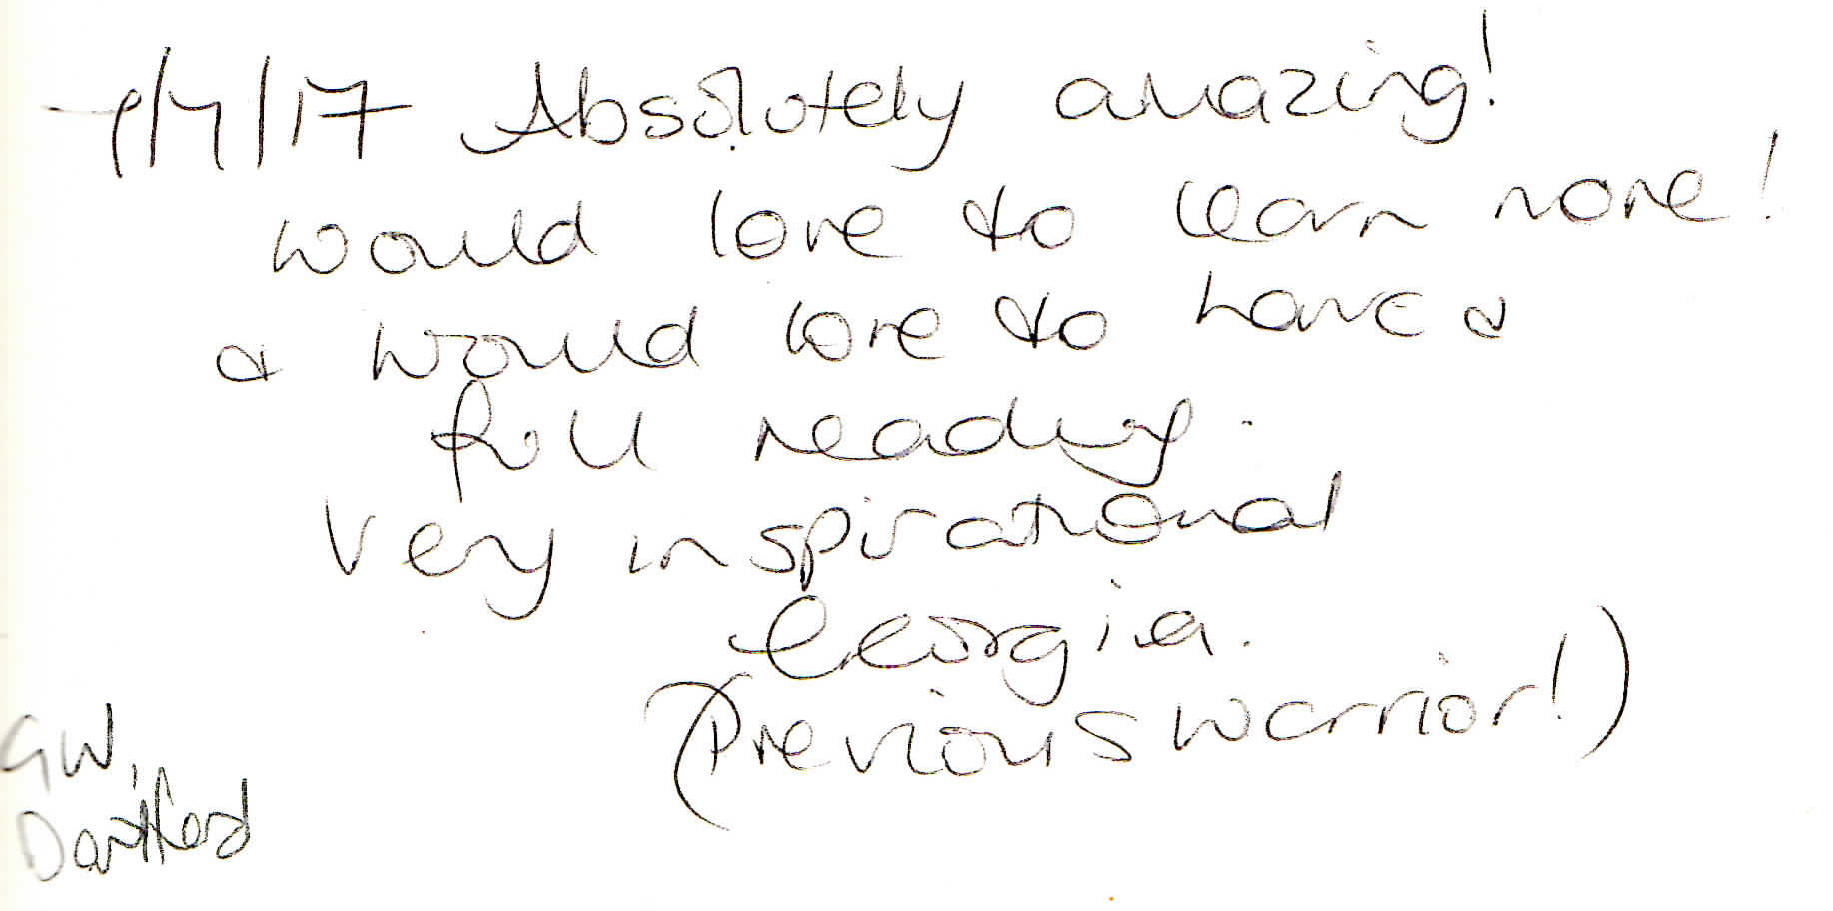 9/4/17 Absolutely amazing!
would love to learn more!
& would love to have a
full reading.
Very inspirational
Georgia.
(Previous warrior!)
GW,
Dartford